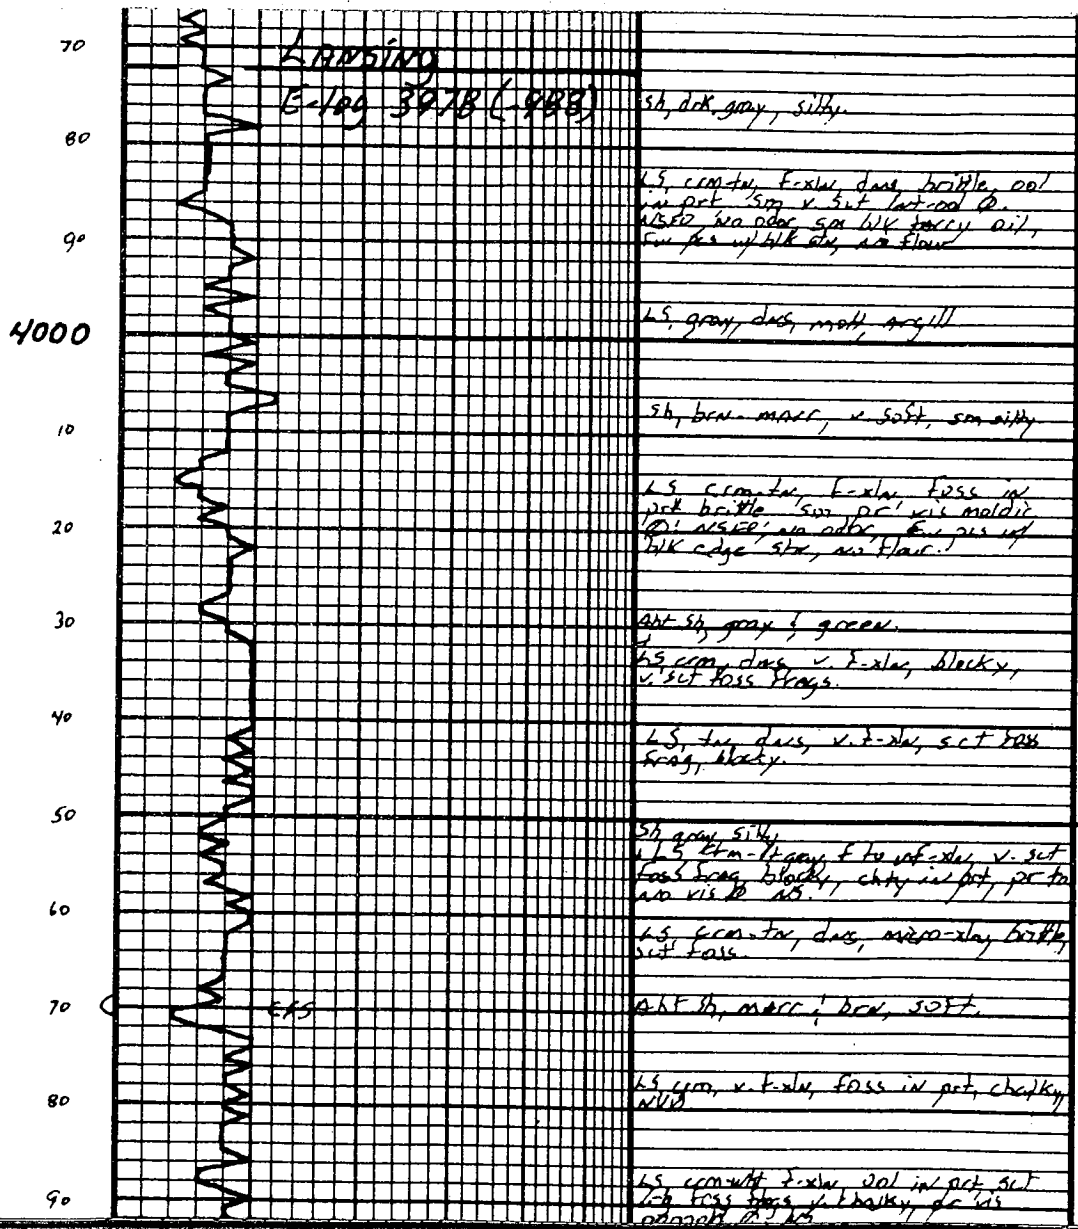 70
LANSING
E-log 3978 (-988)
sh, drk gray, silty.
80
LS, crm-tn, f-xln, dns, brittle, ool
in prt sm v. sct int-ool Ø.
NSFO no odor, sm blk tarry oil,
fw pcs w/ blk stn, no flour
90
LS, gray, dns, mott, argill
4000
sh, brn-marr, v. soft, sm silty
10
LS crm-tn, f-xln, foss in
prt brittle sm pr vis moldic
Ø. NSFO, no odor, fw pcs w/
blk edge stn, no flour.
20
30
Abt sh, gray & green.
LS crm, dns, v. f-xln, blocky,
v. sct foss frags.
40
LS, tn, dns, v. f-xln, sct foss
frag, blocky.
50
Sh gray, silty
LS crm-lt gray, f to vf-xln, v. sct
foss frag, blocky, chty in prt, pr to
no vis Ø NS.
60
LS crm-tn, dns, micro-xln, brittle,
sct foss.
70
CFS
Abt sh, marr & brn, soft.
80
LS, crm, v. f-xln, foss in prt, chalky,
NVØ
90
LS crm-wht f-xln, ool in prt sct
foss frags v. chalky, pr vis
Ø NS